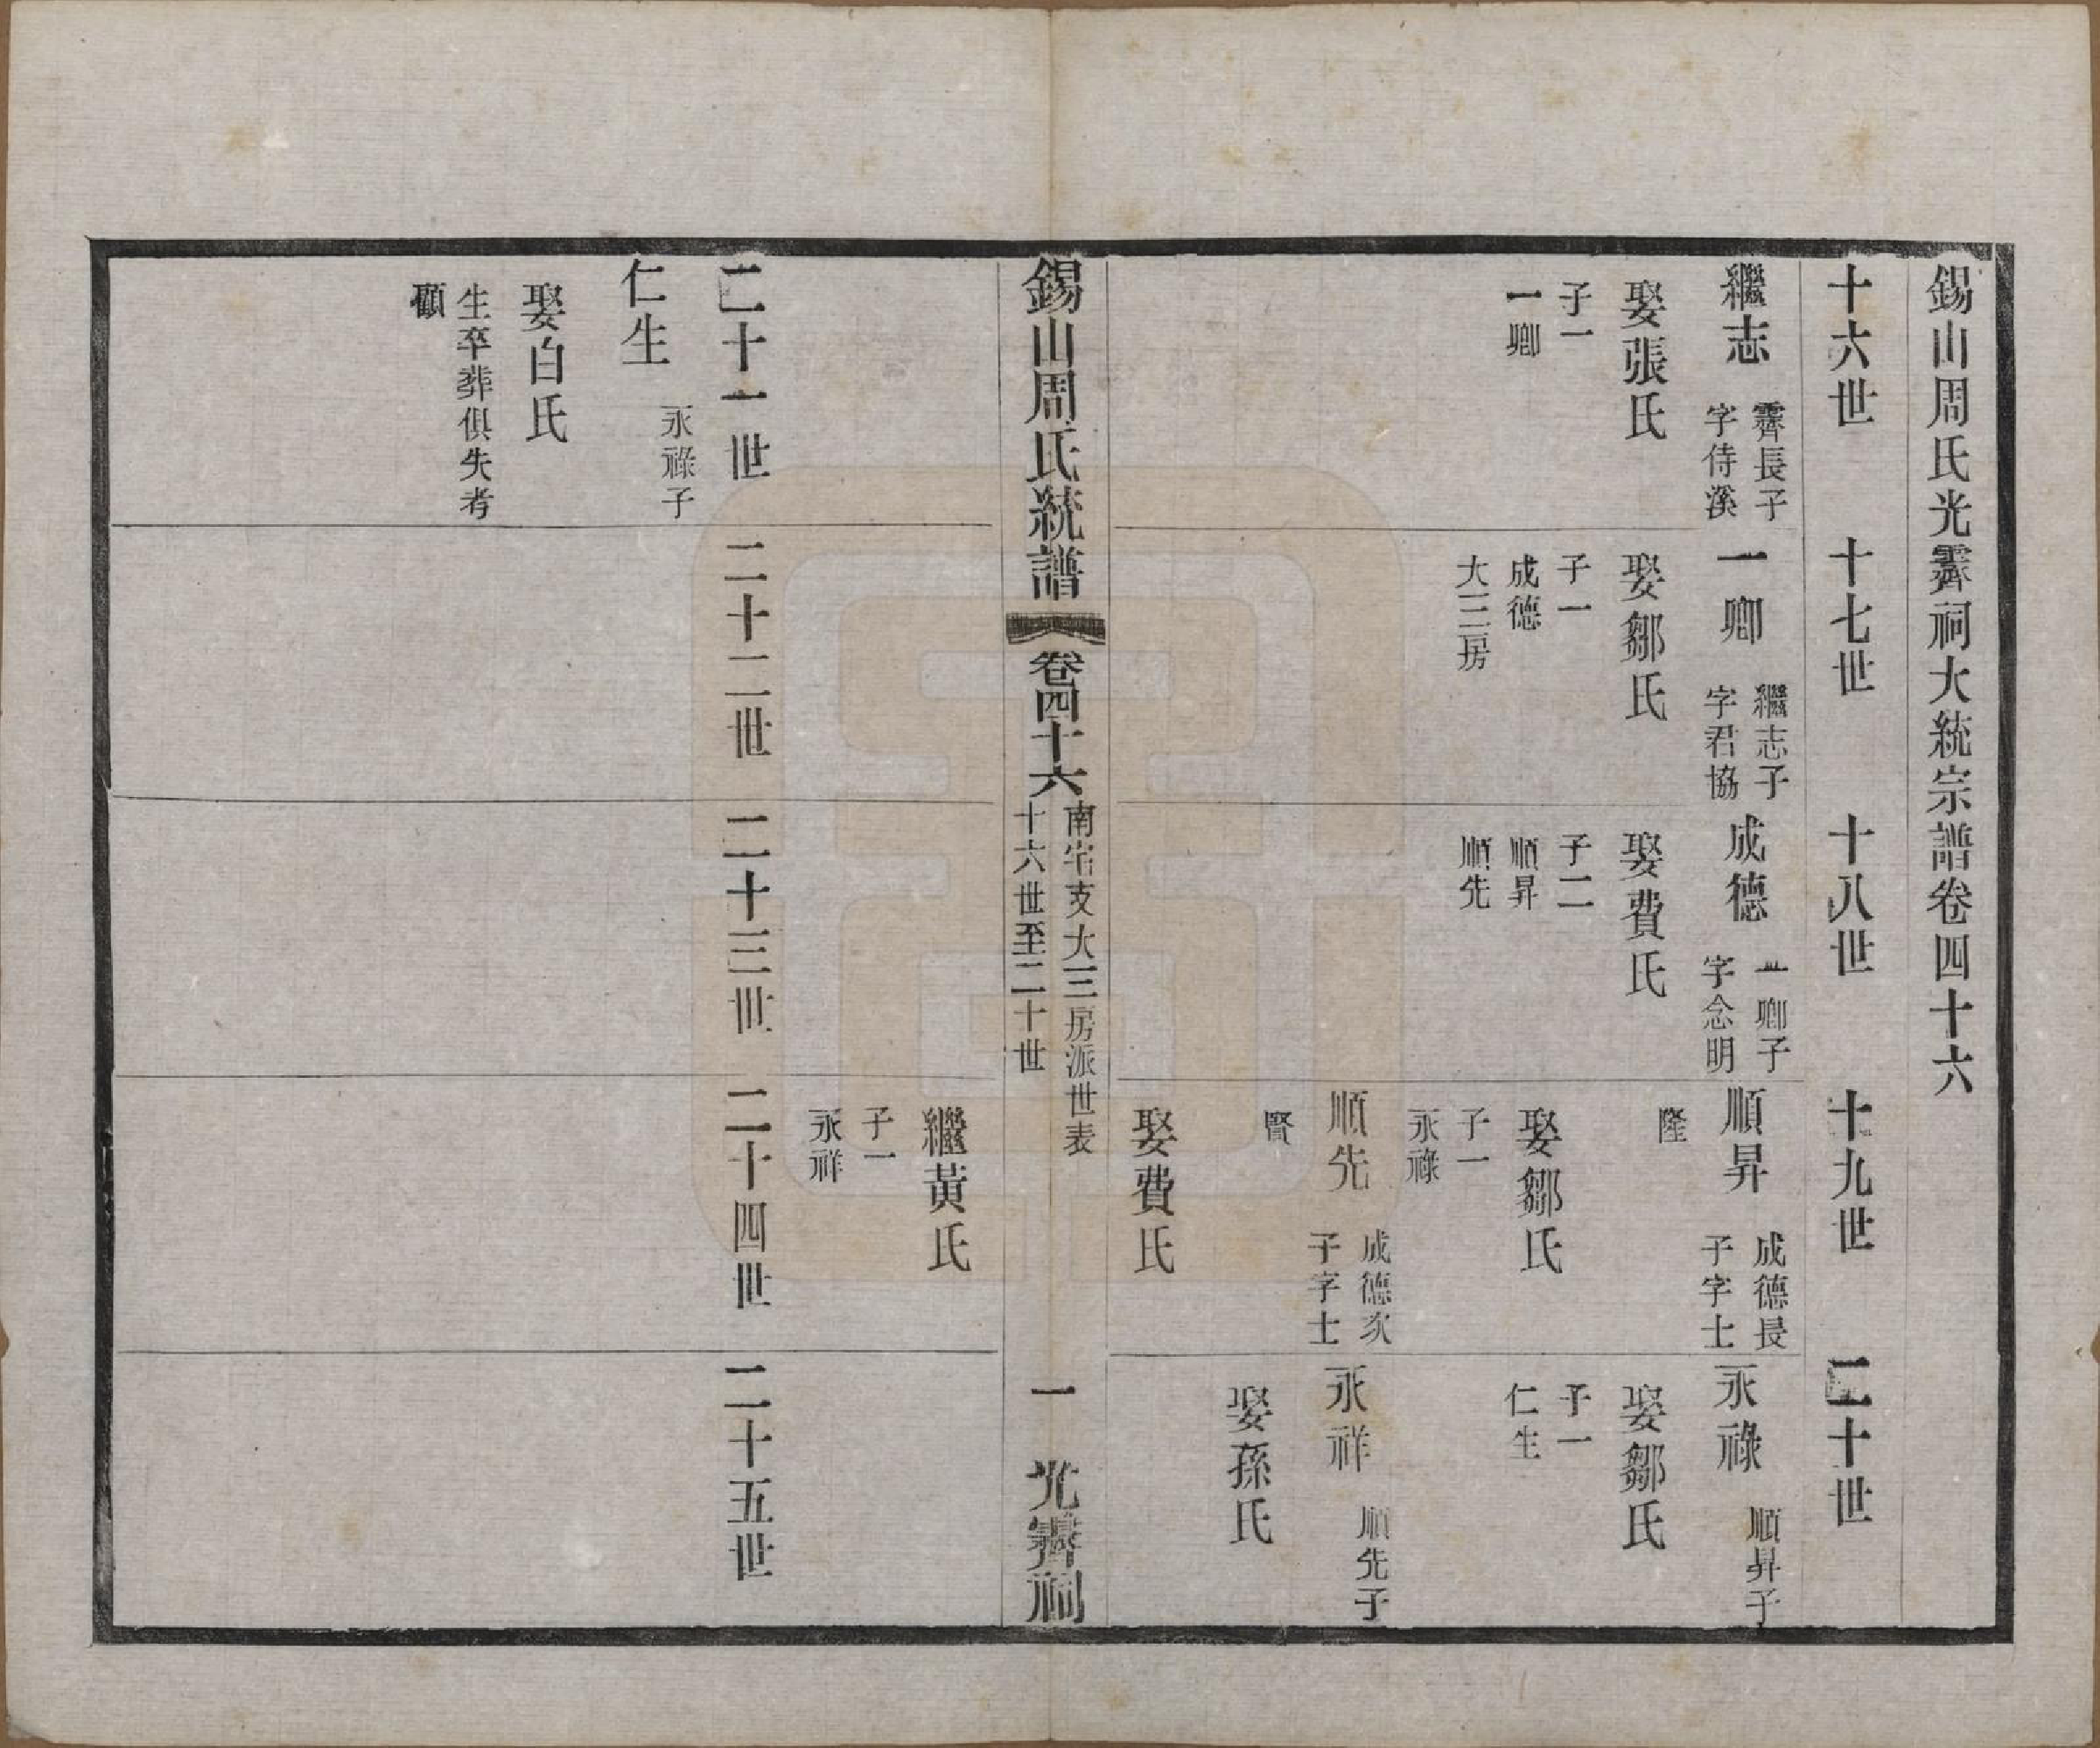 錫山周氏光霽祠大統宗譜卷四十六
十六世
十七世
十八世
十九世
二十世
繼志
霽長子
字侍溪
娶張氏
子一
一卿
一卿
繼志子
字君協
娶鄒氏
子一
成德
大三房
成德
一卿子
字念明
娶費氏
子二
順昇
順先
順昇
成德長
子字士
隆
娶鄒氏
子一
永祿
順先
成德次
子字士
賢
娶費氏
永祿
順昇子
娶鄒氏
子一
仁生
永祥
順先子
娶孫氏
錫山周氏統譜
卷四十六
南宅支大三房派世表
十六世至二十世
一
光霽祠
繼黃氏
子一
永祥
二十一世
二十二世
二十三世
二十四世
二十五世
仁生
永祿子
娶白氏
生卒葬俱失考
顧